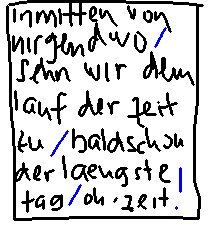 inmitten von
nirgendwo/
sehn wir dem
lauf der zeit
zu/baldschon
der laengste
tag/oh.zeit!